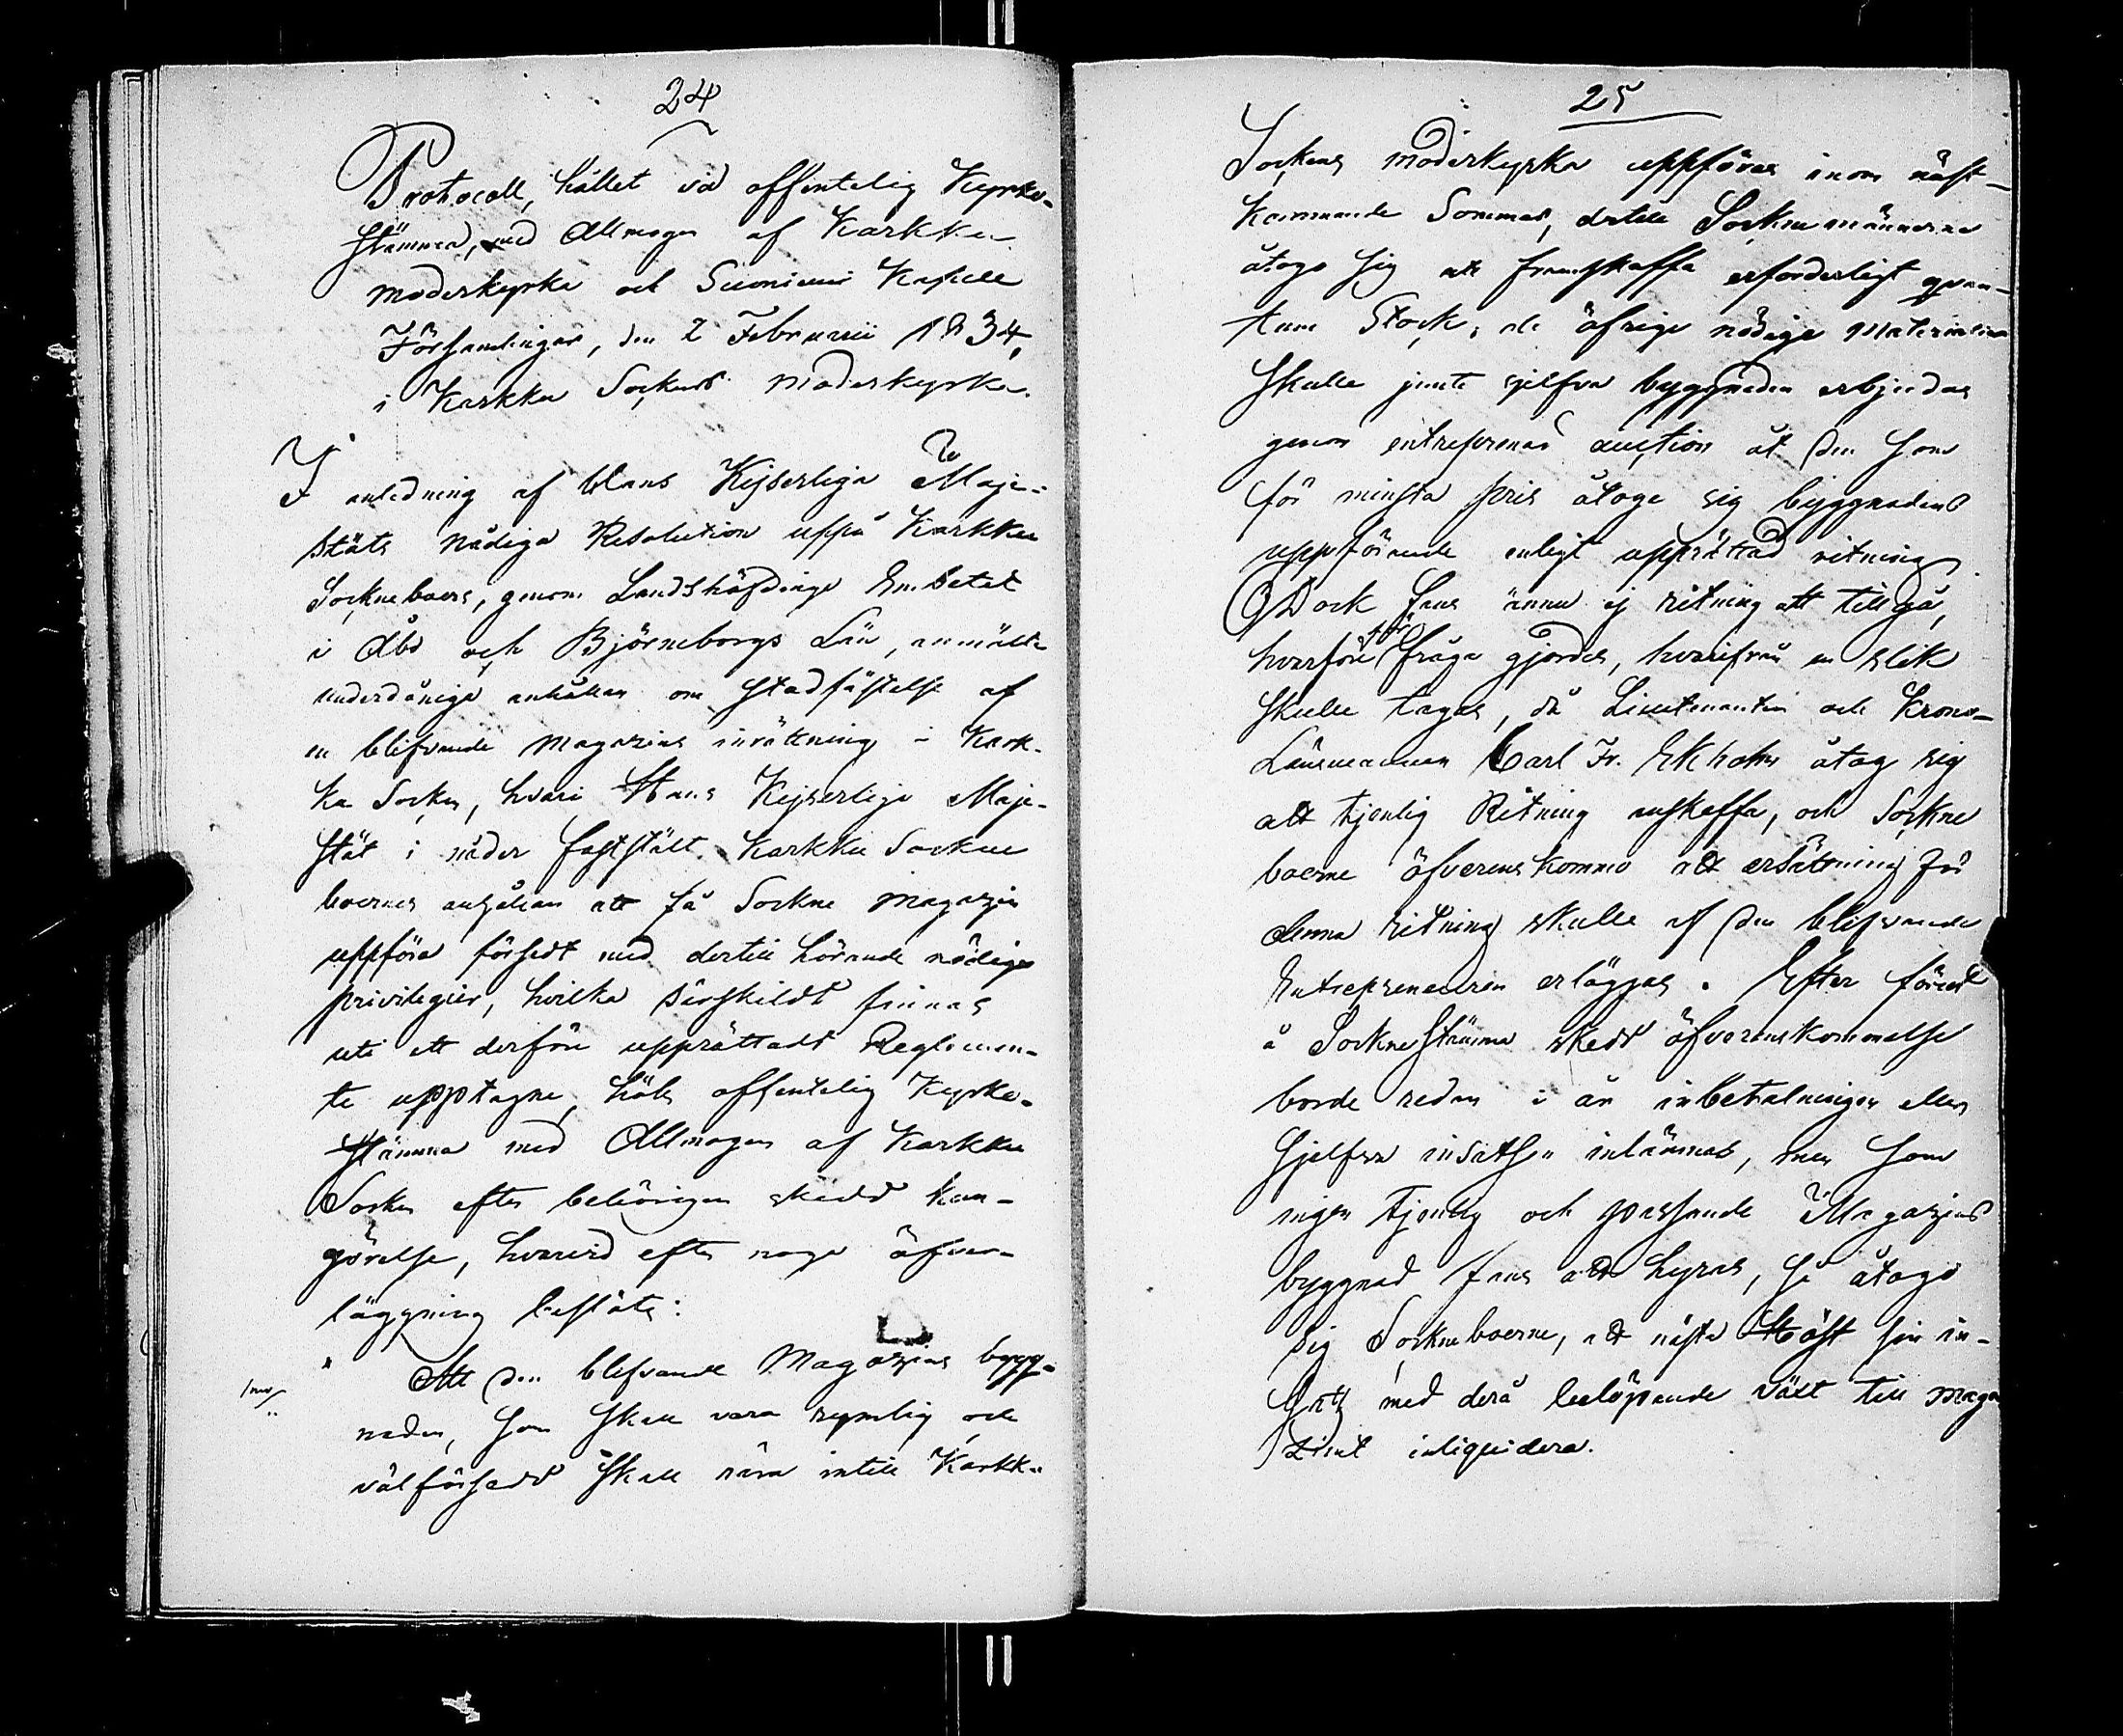 24
Protocoll, hållet vid offentelig Kyrko-
stämma, med Allmogen af Karkku
moderkyrko och Suoniemi Kapell
Församlingar, den 2 Februarii 1834,
i Karkku Sockens moderkyrka.
I anledning af Hans Kejserliga Maje-
stäts nådiga Resolution uppå Karkku
Sockneboers, genom Landshöfdinge Embetet
i Åbo och Björneborgs Län, anmälte
underdånige anhållan om stadfästelse af
en blifvande magazins inrättning i Kark-
ku Socken, hvari Hans Kejserliga Maje-
stät i nåder faststält Karkku Sockne
boernes ansökan att få Sockne magazin
uppföra försedt med dertill hörande nödige
privilegier, hvilka särskildt finnas
uti ett derföre upprättadt Reglemen-
te upptagne, hölls offentelig Kyrko-
stämma med Allmogen af Karkku
Socken efter behörigen skedd kun-
görelse, hvarvid efter noga öfver-
läggning beslöts:
1mo/ Att den blifvande Magazins bygg-
naden, som skall vara rymlig och
välförsedd skall nära intill Karkku
25
Sockens moderkyrka uppföras inom näst-
kommande Sommar, dertill Sockne männerne
åtogo sig att framskaffa erforderligt qvan-
tum Stock, de öfrige nödige materialier
skulle jemte sjelfva byggnaden erbjudas
genom entreprenad auction åt den som
för minsta pris åtoge sig byggnadens
uppförande enligt upprättad ritning
Dock fans ännu ej ritning att tillgå,
hvarföre fråga gjordes, hvarifrån en slik
skulle tagas, då Lieutenanten och Krono-
Länsmannen Carl Fr. Ekholm åtog sig
att tjenlig Ritning anskaffa, och Sockne
boerne öfverenskommo att ersättning för
denna ritning skulle af den blifvande
Entrepreneuren erläggas. Efter förut
å Sockne Stämma skedd öfverenskommelse
borde redan i år inbetalningen eller
sjelfva insatsen inlämnas, men som
ingen tjenlig och passande Magazins
byggnad fans att hyras, så åtogo
sig Sockneboerne, att nästa Höst sin in-
sats med derå belöpande växt till maga
zinet inliquidera.